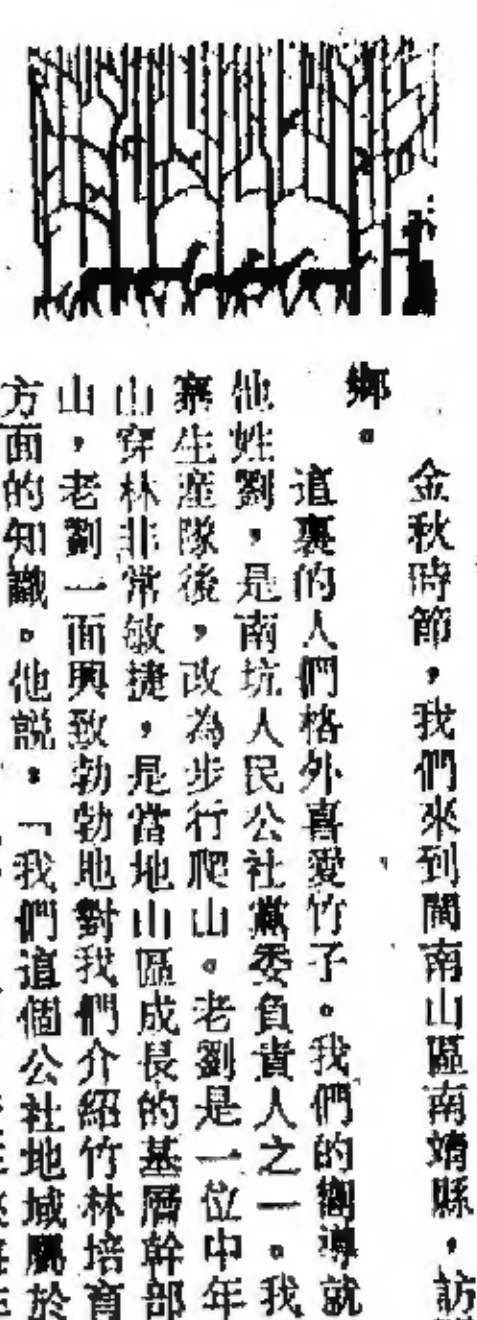 金秋時節，我們來到閩南山區南靖縣，訪
鄉。
這裏的人們格外喜愛竹子。我們的嚮導就
他姓劉，是南坑人民公社黨委負責人之一。我
生產隊後，改為步行爬山。老劉是一位中年
山穿林非常敏捷，是當地山區成長的基層幹部
山，老劉一面興致勃勃地對我們介紹竹林培育
方面的知識。他說：「我們這個公社地域屬於